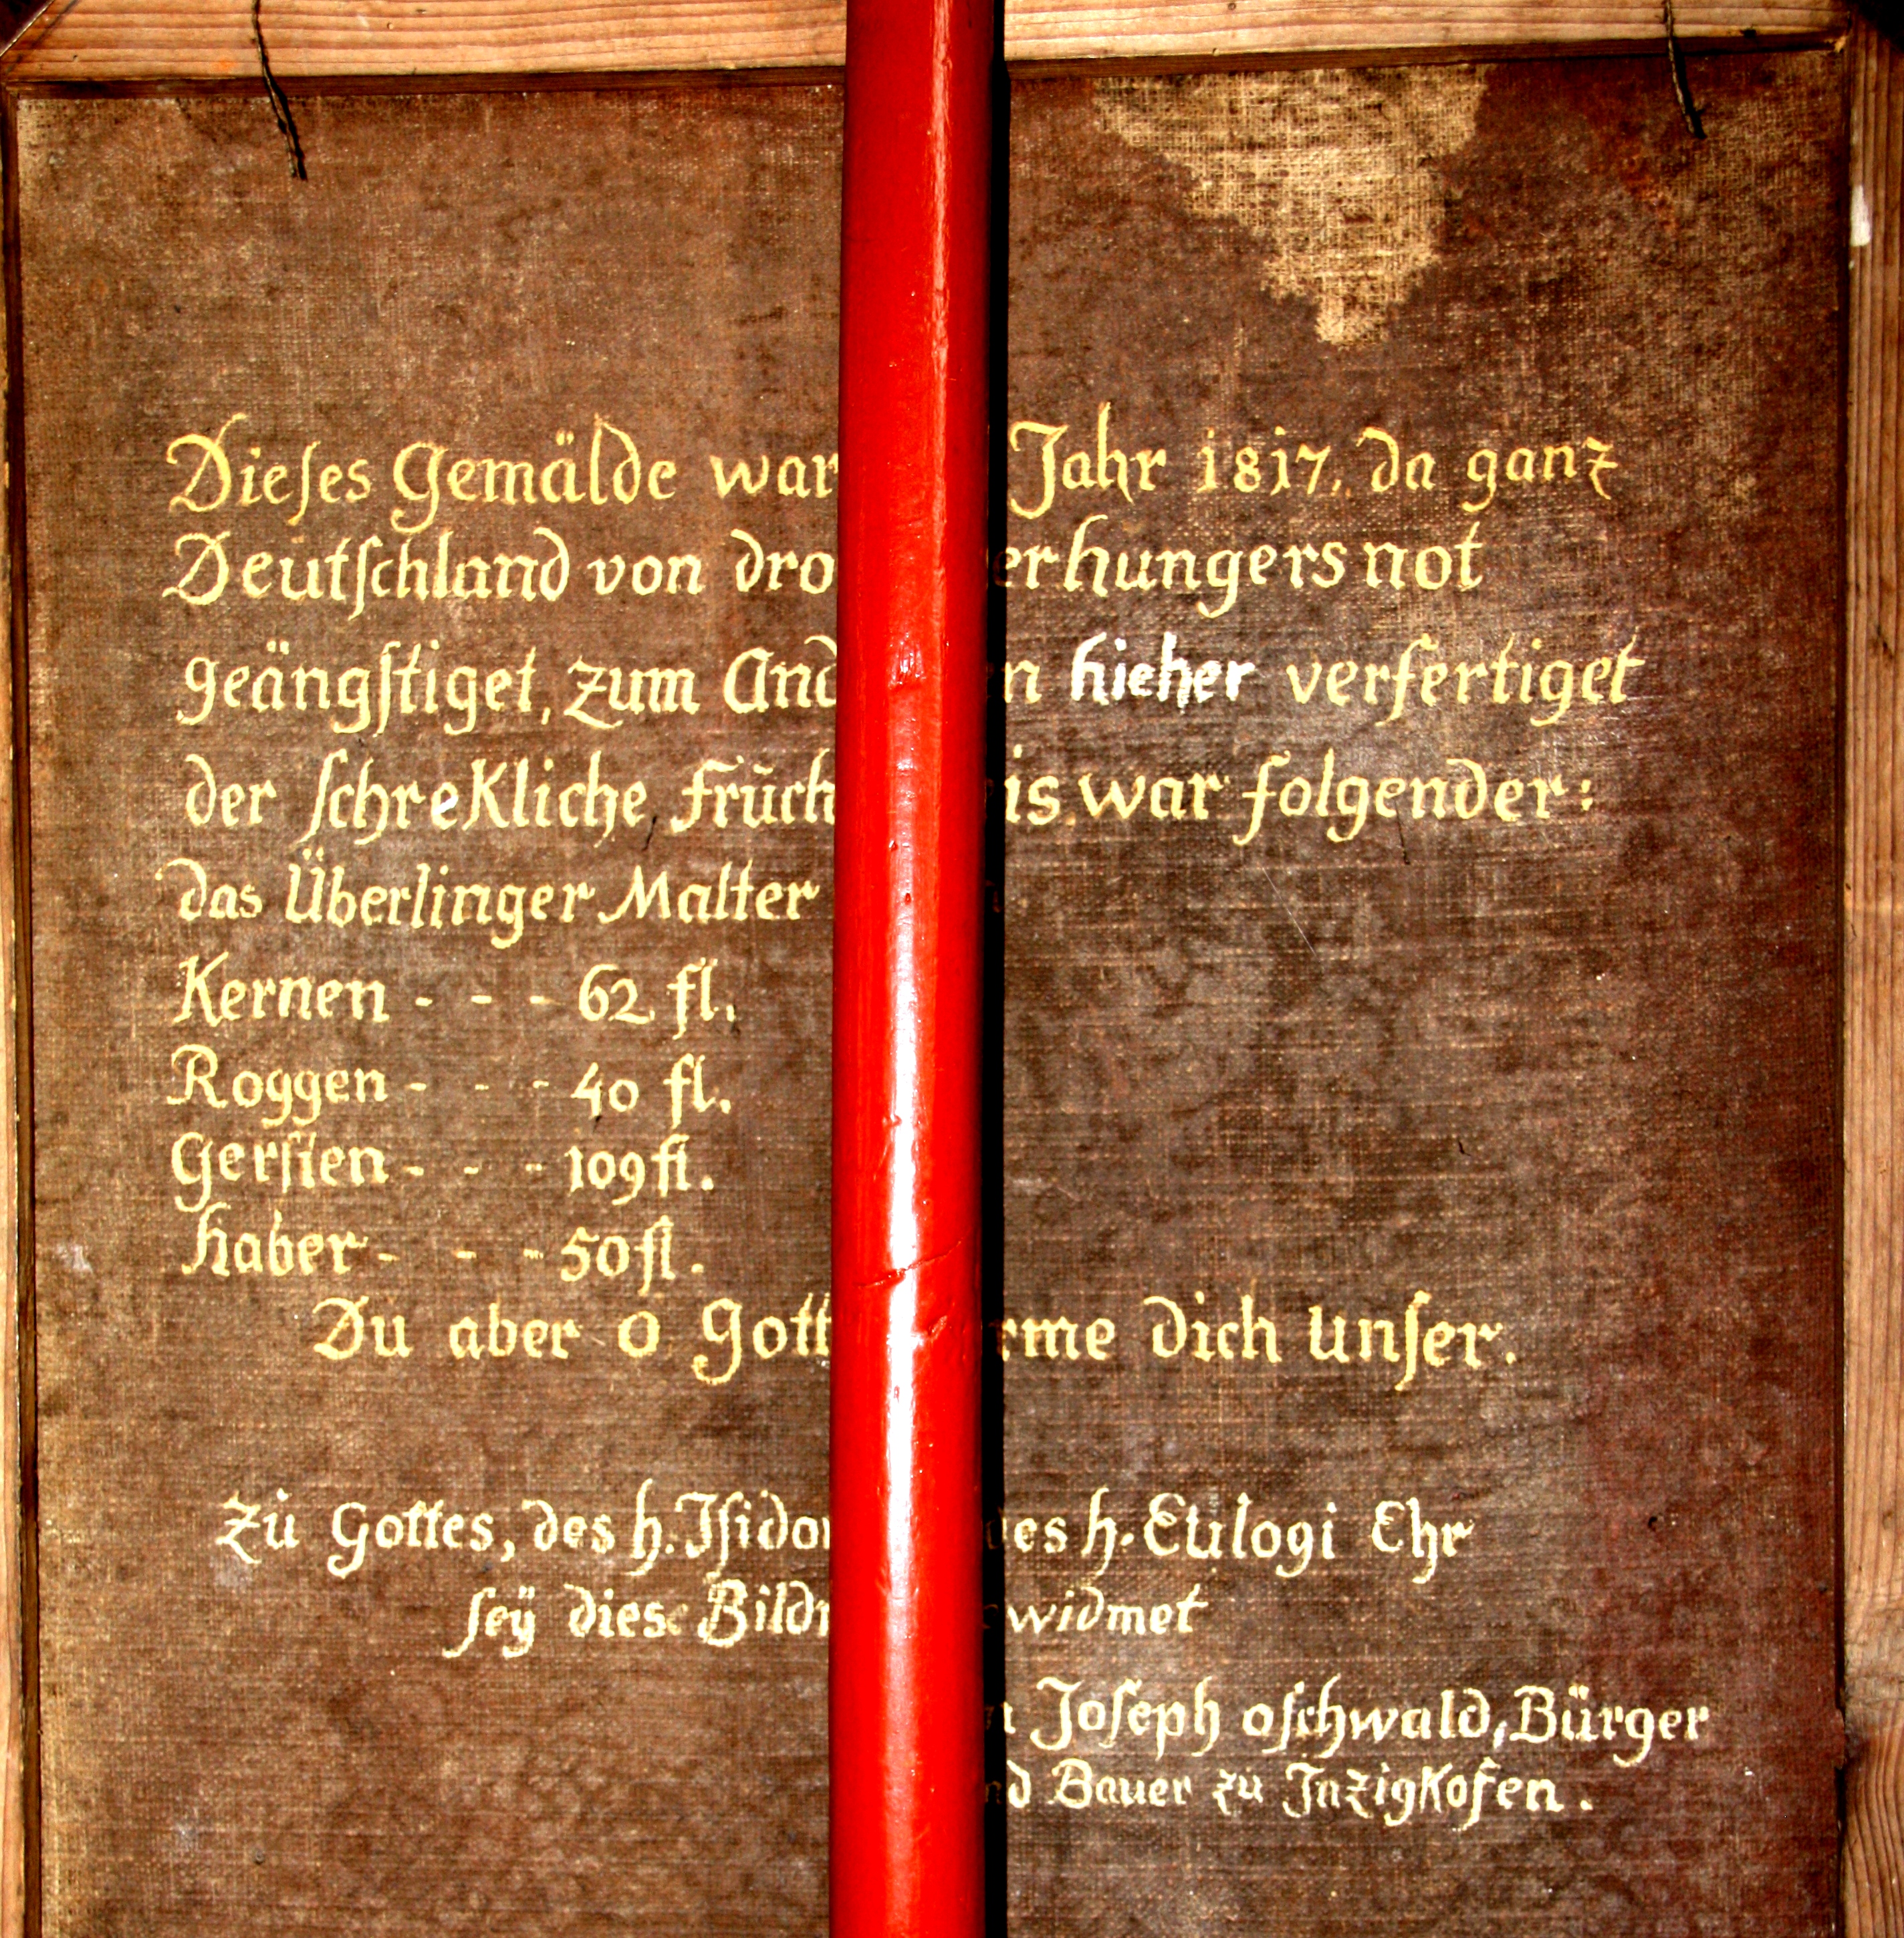 Dieſes Gemälde war Jahr 1817. da ganz
Deutſchland von dro erhungersnot
geängſtiget, zum And n hieher verfertiget
der ſchrekliche Früch is war folgender:
das Überlinger Malter
Kernen - - - 62 fl.
Roggen - - - 40 fl.
Gerſten - - - 109 fl.
haber - - - 50 fl.
Du aber O Gott rme dich unſer.
Zu Gottes, des h. Iſidor des h. Eulogi Ehr
ſeÿ diese Bildn widmet
Joſeph oſchwald, Bürger
nd Bauer zu Inzigkofen.